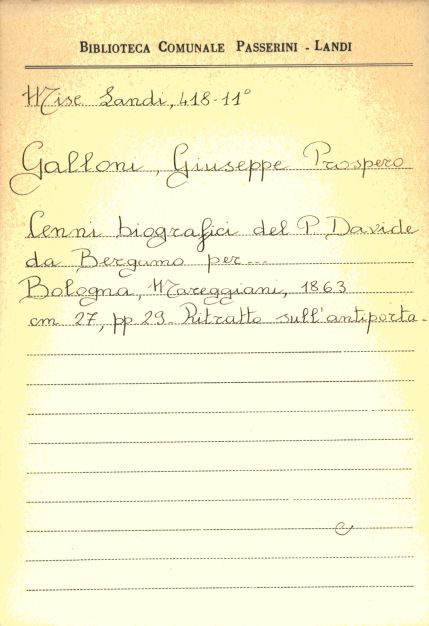 BIBLIOTECA COMUNALE PASSERINI - LANDI
Misc Landi, 418-11°
Galloni, Giuseppe Prospero
Cenni biografici del P. Davide
da Bergamo per...
Bologna, Mareggiani, 1863
cm 27, pp 29. Ritratto sull'antiporta.